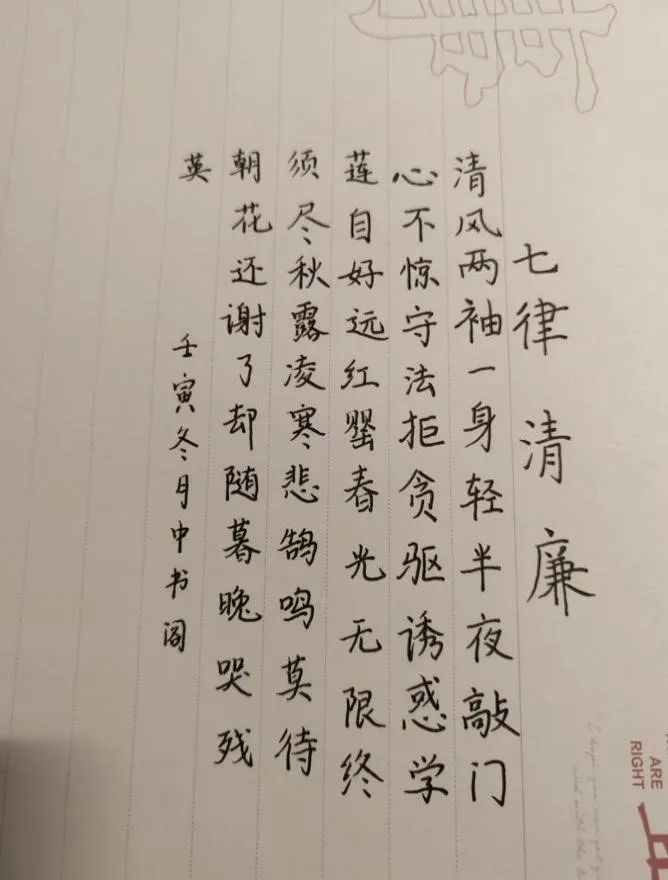 七律 清廉
清风两袖一身轻半夜敲门
心不惊守法拒贪驱诱惑学
莲自好远红罂春光无限终
须尽秋露凌寒悲鹄鸣莫待
朝花还谢了却随暮晚哭残
英
壬寅冬月中书阁
ARE
RIGHT